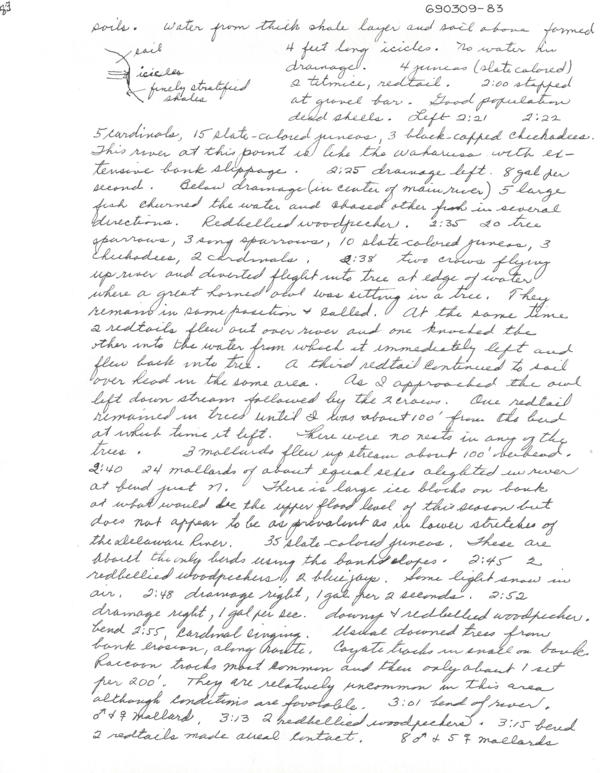 83
690309-83
soils. Water from thick shale layer and soil above formed
soil
icicles
finely stratified
shales
4 feet long icicles. No water in
drainage. 4 juncos (slate colored)
2 titmice, redtail. 2:00 stopped
at gravel bar. Good population
dead shells. Left 2:21 2:22
5 cardinals, 15 slate-colored juncos, 3 black-capped chickadees.
This river at this point is like the Wakarusa with ex-
tensive bank slippage. 2:25 drainage left. 8 gal per
second. Below drainage (in center of main river) 5 large
fish churned the water and chased other fish in several
directions. Redbellied woodpecker. 2:35 20 tree
sparrows, 3 song sparrows, 10 slate-colored juncos, 3
chickadees, 2 cardinals. 2:38 two crows flying
up river and diverted flight into tree at edge of water
where a great horned owl was sitting in a tree. They
remain in same position & called. At the same time
2 redtails flew out over river and one knocked the
other into the water from which it immediately left and
flew back into tree. A third redtail continued to sail
over head in the same area. As I approached the owl
left down stream followed by the 2 crows. One redtail
remained in trees until I was about 100' from the bird
at which time it left. There were no nests in any of the
trees. 3 mallards flew up stream about 100' overhead.
2:40 24 mallards of about equal sexes alighted in river
at bend just N. There is large ice blocks on bank
at what would be the upper flood level of this season but
does not appear to be as prevalent as in lower stretches of
the Delaware River. 35 slate-colored juncos. These are
about the only birds using the bank slopes. 2:45 2
redbellied woodpeckers, 2 blue jays. Some light snow in
air. 2:48 drainage right, 1 gal per 2 seconds. 2:52
drainage right, 1 gal per sec. downy & redbellied woodpecker.
bend 2:55, Cardinal singing. Usual downed trees from
bank erosion, along route. Coyote tracks in snow on bank.
Raccoon tracks most common and then only about 1 set
per 200'. They are relatively uncommon in this area
although conditions are favorable. 3:01 bend of river.
♂ & ♀ mallard. 3:13 2 redbellied woodpeckers. 3:15 bend
2 redtails made aerial contact. 8 ♂ & 5 ♀ mallards